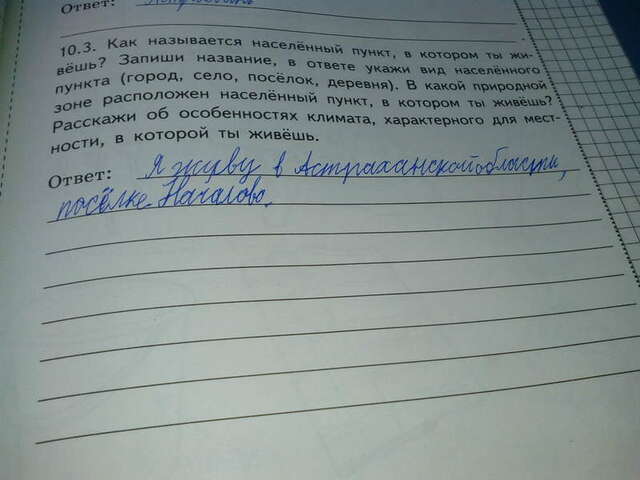 Ответ:
10.3. Как называется населённый пункт, в котором ты жи-
вёшь? Запиши название, в ответе укажи вид населённого
пункта (город, село, посёлок, деревня). В какой природной
зоне расположен населённый пункт, в котором ты живёшь?
Расскажи об особенностях климата, характерного для мест-
ности, в которой ты живёшь.
Ответ: Я живу в Астраханской области,
посёлке Началово.